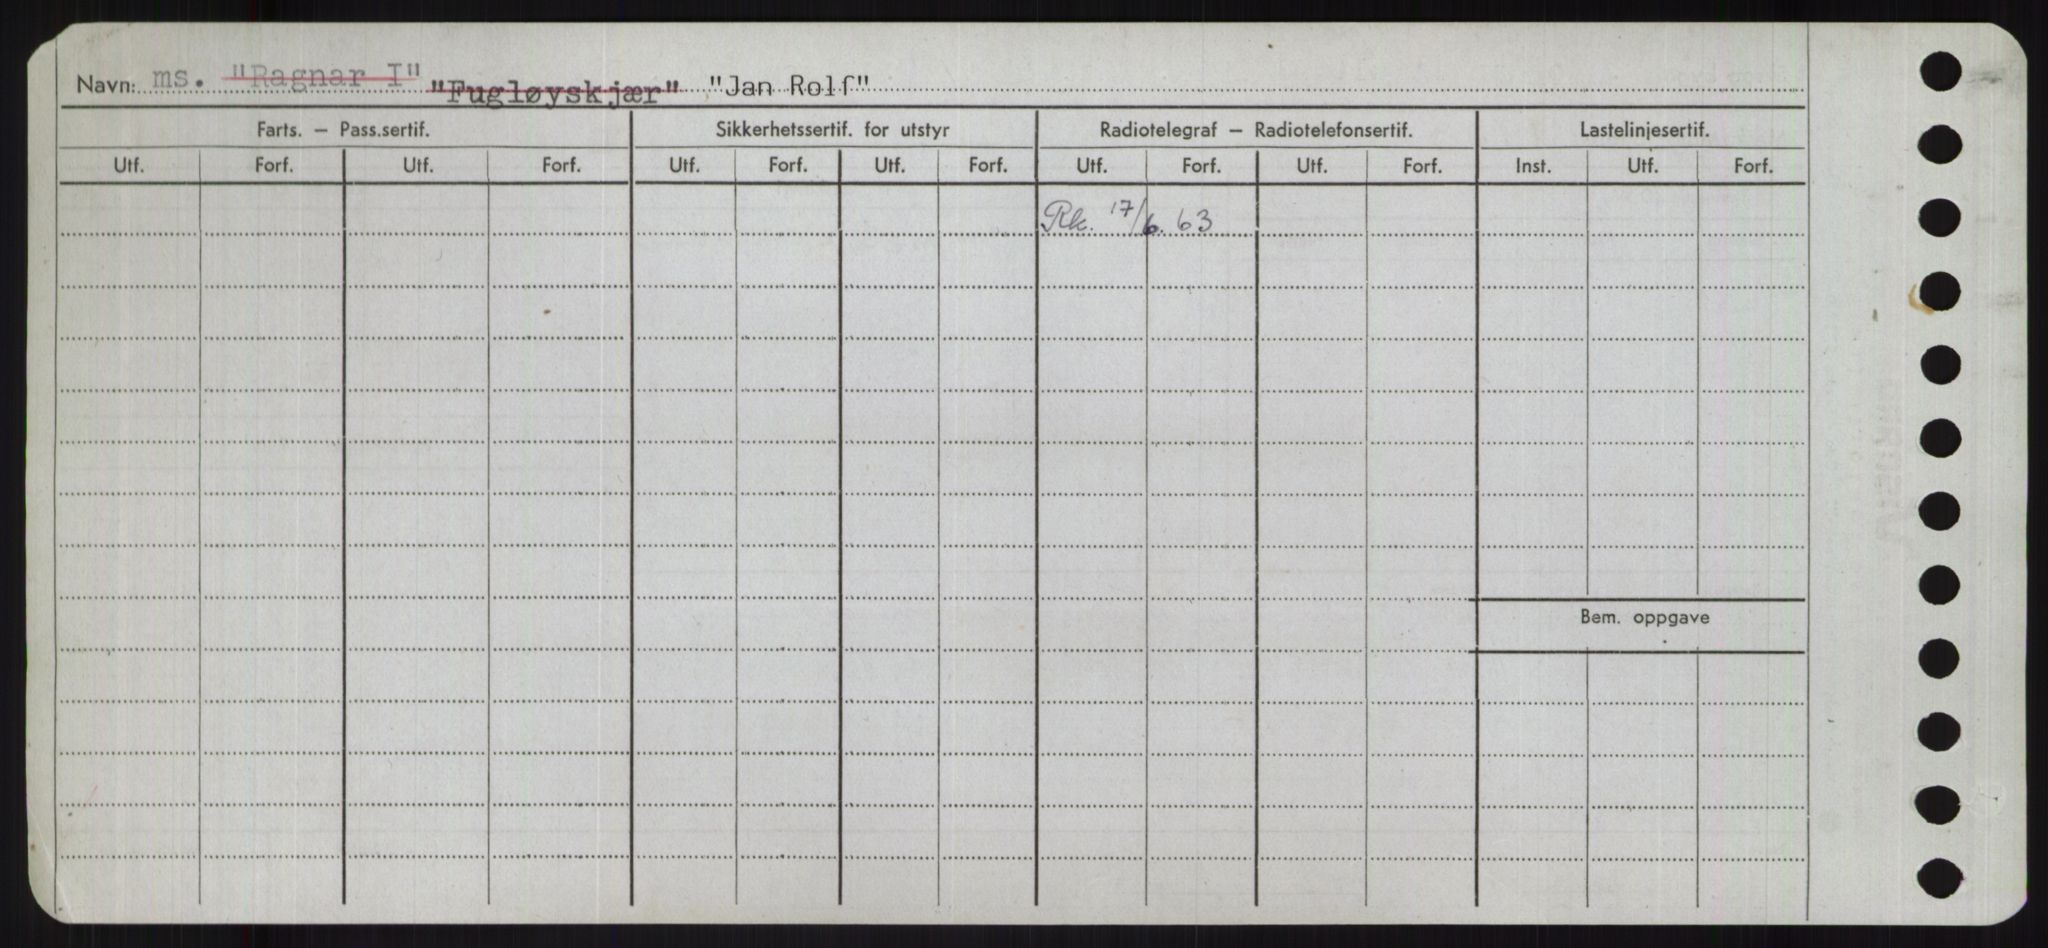 Navn: ms. "Ragnar I" "Fugløyskjær" "Jan Rolf"
Farts. — Pass.sertif. Sikkerhetssertif. for utstyr Radiotelegraf — Radiotelefonsertif. Lastelinjesertif.
Utf. Forf. Utf. Forf. Utf. Forf. Utf. Forf. Utf. Forf. Utf. Forf. Inst. Utf. Forf.
Rk. 17/6. 63
Bem. oppgave